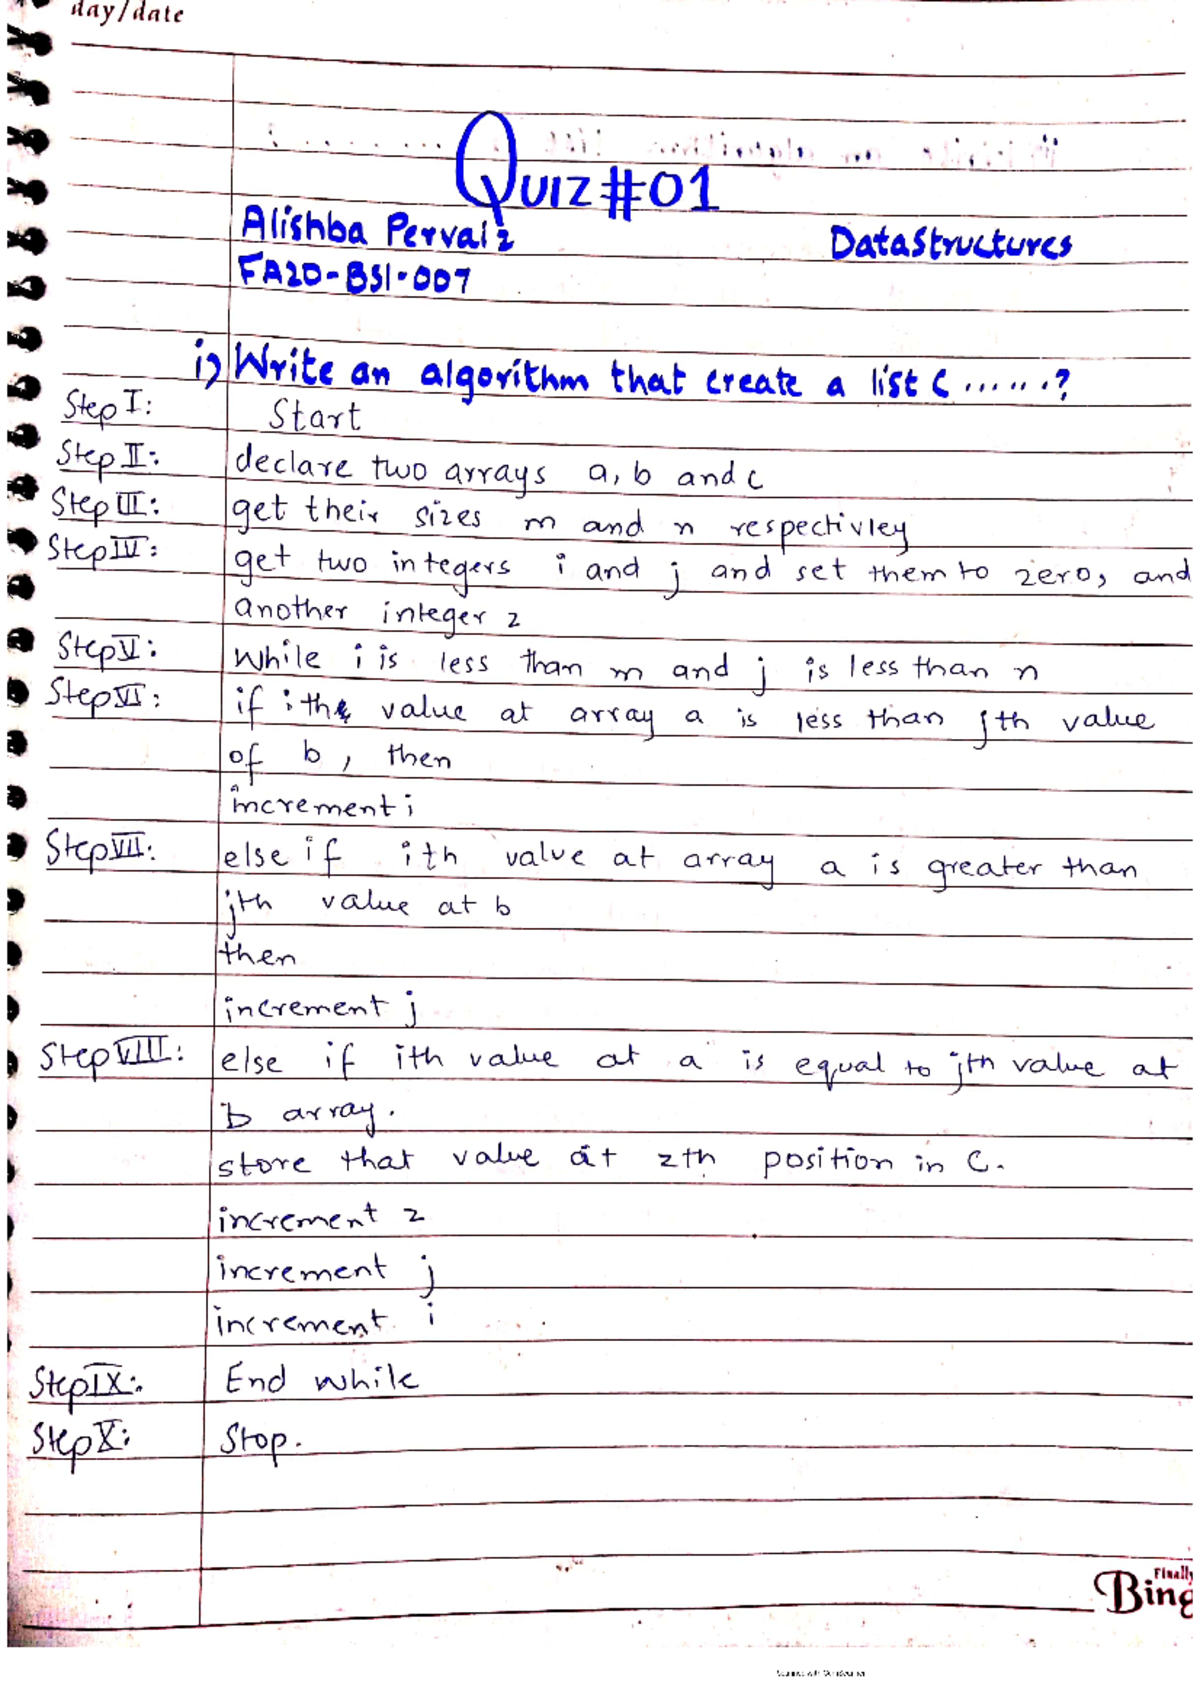 day/date
Quiz#01
Alishba Pervaiz DataStructures
FA20-BSI-007
i) Write an algorithm that create a list C ......?
Step I: Start
Step II: declare two arrays a, b and c
Step III: get their sizes m and n respectivley
Step IV: get two integers i and j and set them to zero, and
another integer z
Step V: While i is less than m and j is less than n
Step VI: if ith value at array a is less than jth value
of b, then
increment i
Step VII: else if ith value at array a is greater than
jth value at b
then
increment j
Step VIII: else if ith value at a is equal to jth value at
b array.
store that value at zth position in C.
increment z
increment j
increment i
Step IX: End while
Step X: Stop.
Finally
Bing
Scanned with CamScanner